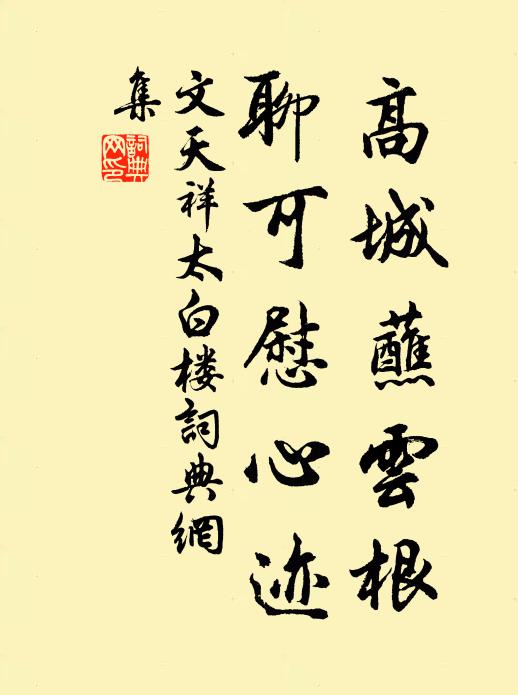 高城蘸雲根
聊可慰心迹
文天祥太白楼詞典網
集
詞典
网印